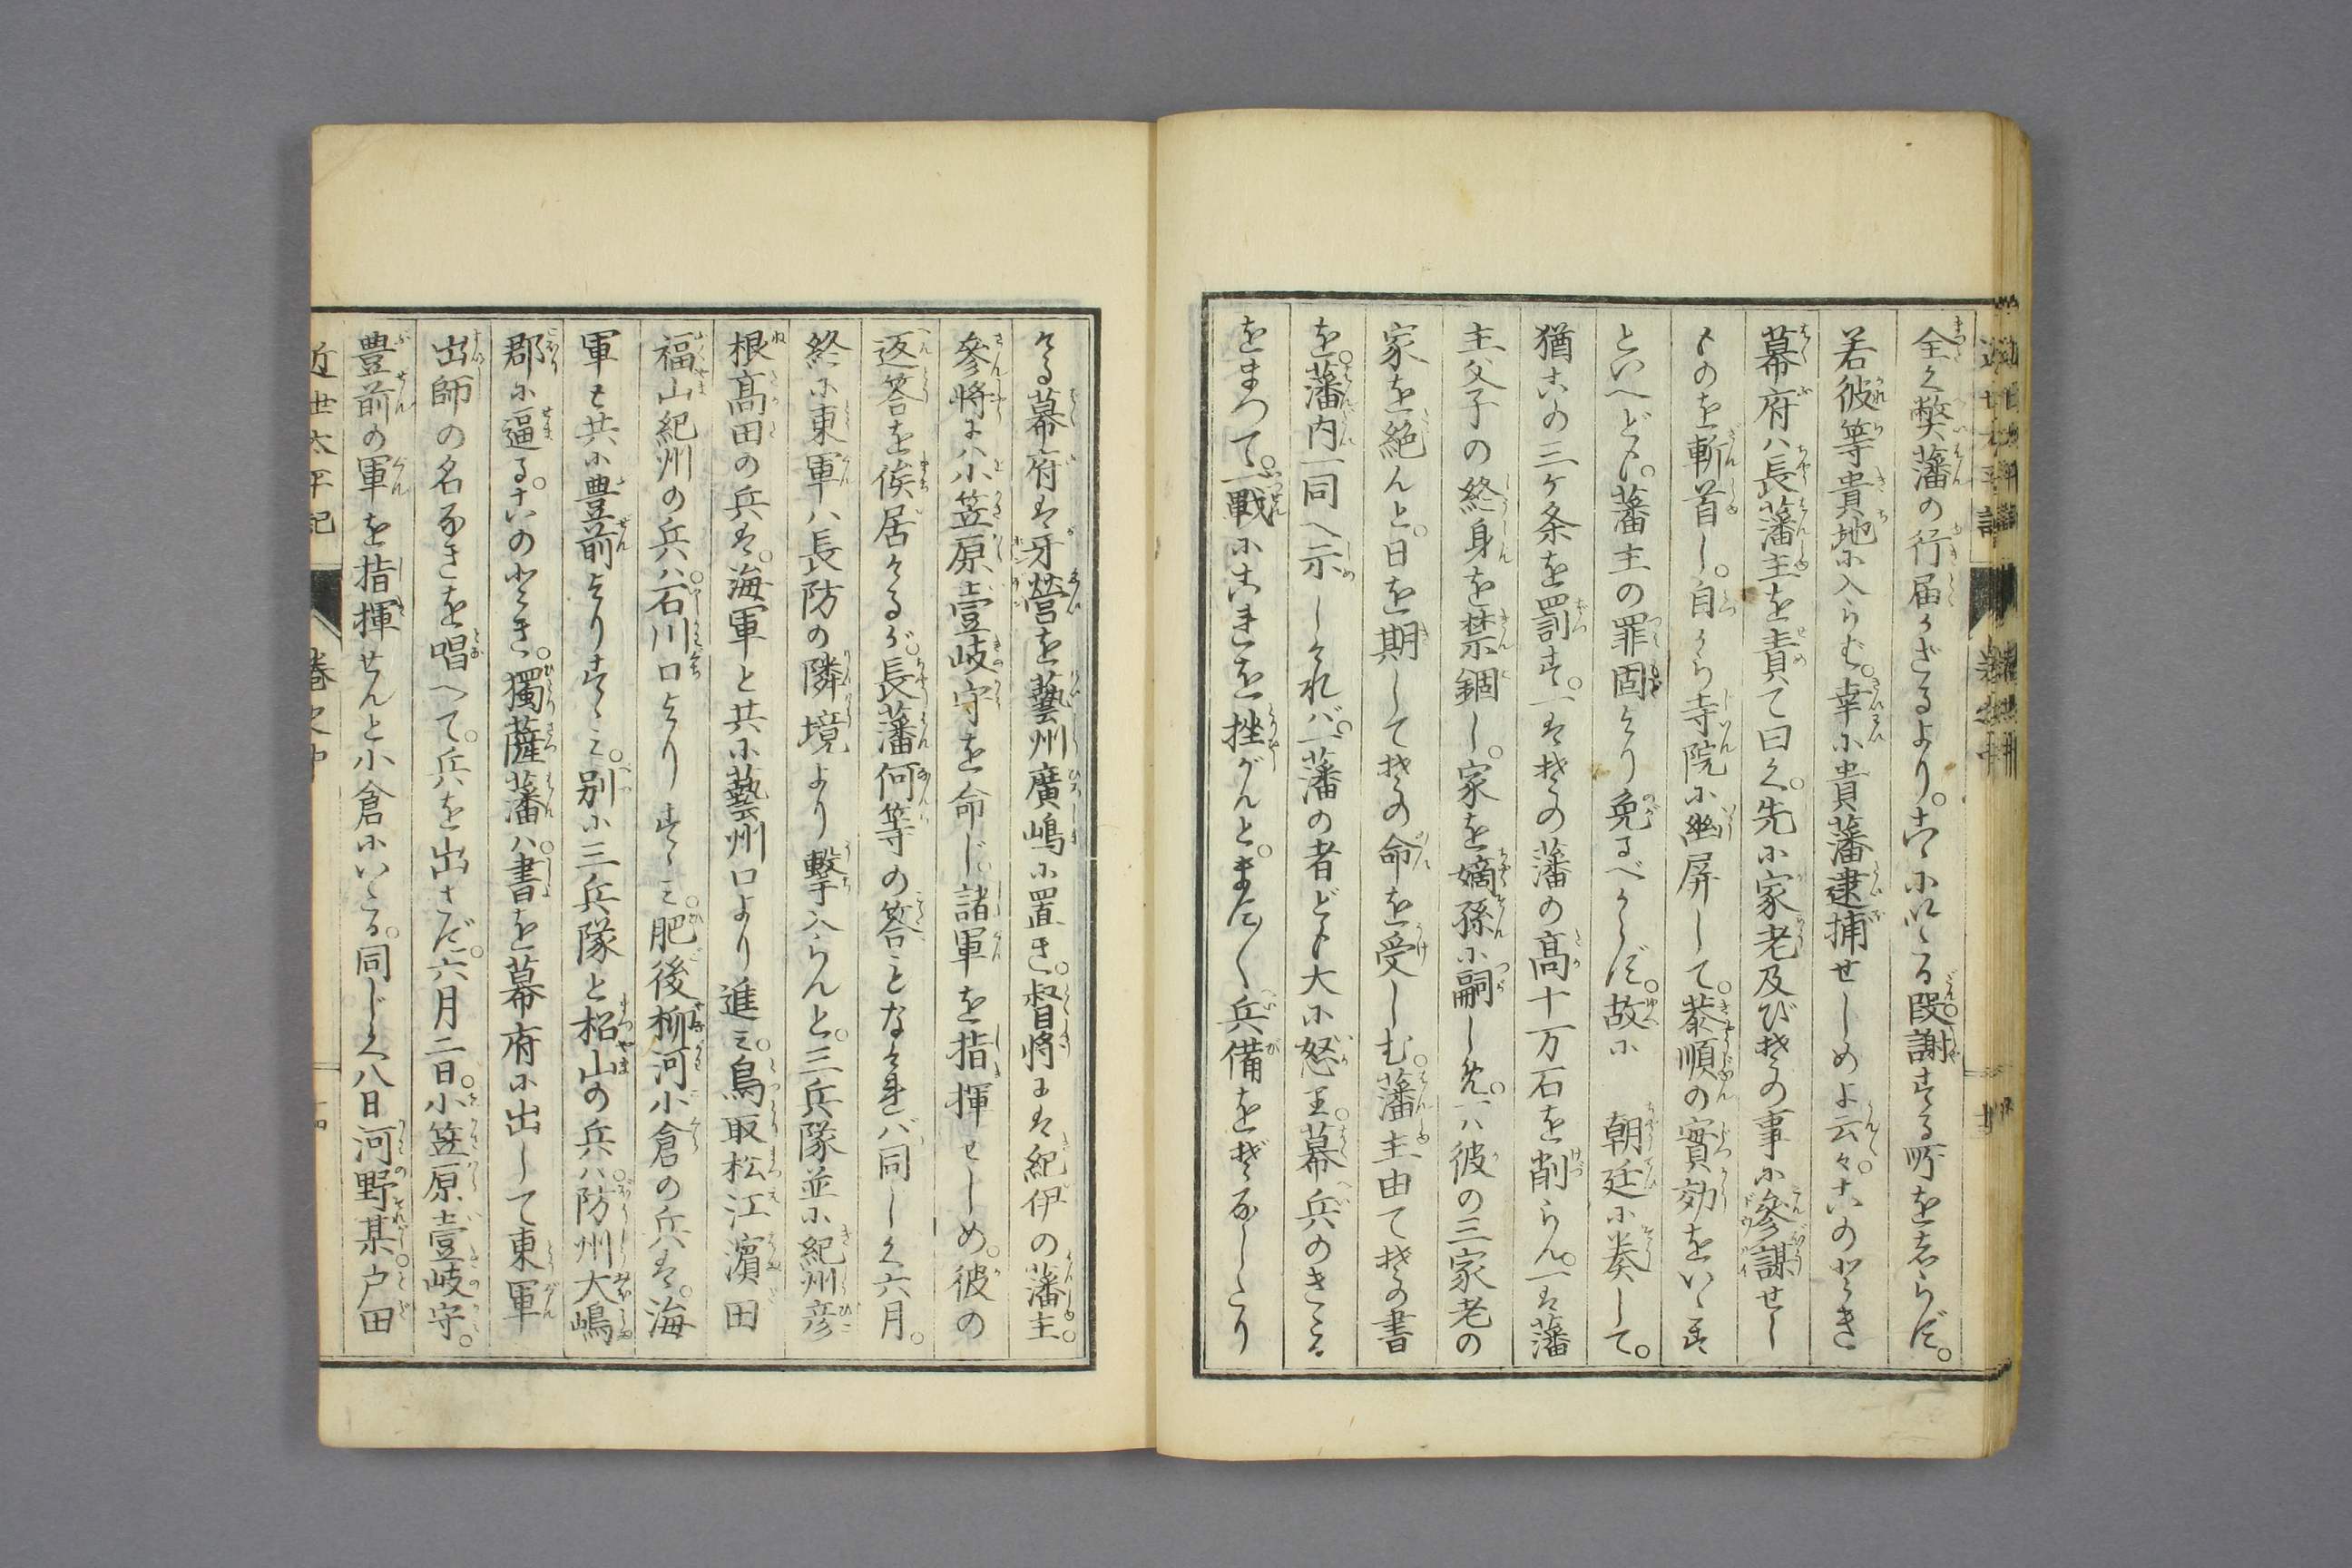 全く弊藩の行届かざるより。こゝに以たる段謝する所をしらず。
若彼等貴地に入らむ。幸に貴藩逮捕せしめよ云々。このとき
幕府ハ長藩主を責て曰く。先に家老及び其の事に參謀せし
ものを斬首し。自から寺院に幽屏して。恭順の實効をいゝ
といへども。藩主の罪固より免るべからず。故に 朝廷に奏して。
猶この三ケ条を罰す。一は其の藩の髙十万石を削らん。一は藩
主父子の終身を禁錮し。家を嫡孫に嗣しめ。一ハ彼の三家老の
家を絶んと。日を期して其の命を受しむ。藩主由て其の書
を。藩内一同へ示しければ。一藩の者ども大に怒り。幕兵のきたる
をまつて。一戰にこれを挫がんと。また〱兵備をぞなしたり
ける幕府は牙營を藝州廣嶋に置き。督將には紀伊の藩主。
參將にハ小笠原壹岐守を命じ。諸軍を指揮せしめ。彼の
返答を俟居けるが。長藩何等の答もなければ同しく六月。
終に東軍ハ長防の隣境より擊入らんと。三兵隊並に紀州彦
根髙田の兵は。海軍と共に藝州口より進み。鳥取松江濵田
福山紀州の兵ハ。石川口よりすゝみ。肥後柳河小倉の兵は。海
軍と共に豊前よりすゝみ。別に三兵隊と枩山の兵ハ。防州大嶋
郡に逼る。このとき。獨薩藩ハ。書を幕府に出して東軍
出師の名なきを唱へて。兵を出さず。六月二日。小笠原壹岐守。
豊前の軍を指揮せんと小倉にいたる。同じく八日河野某。戸田
近世太平記 巻之中